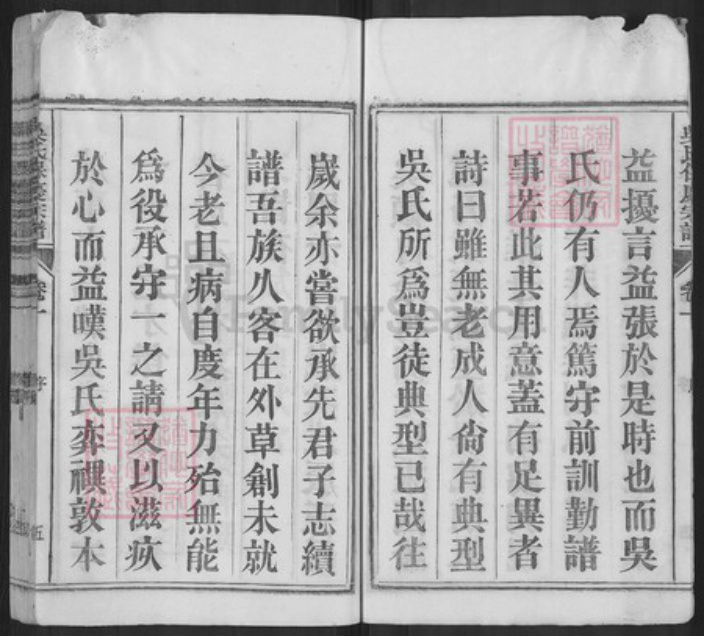 益擾言益張於是時也而吳
氏仍有人焉篤守前訓勤譜
事若此其用意蓋有足異者
詩曰雖無老成人尙有典型
吳氏所爲豈徒典型已哉往
歲余亦嘗欲承先君子志續
譜吾族久客在外草創未就
今老且病自度年力殆無能
爲役承守一之請又以滋疚
於心而益嘆吳氏弈禩敦本
卷一
序
五
FamilySearch